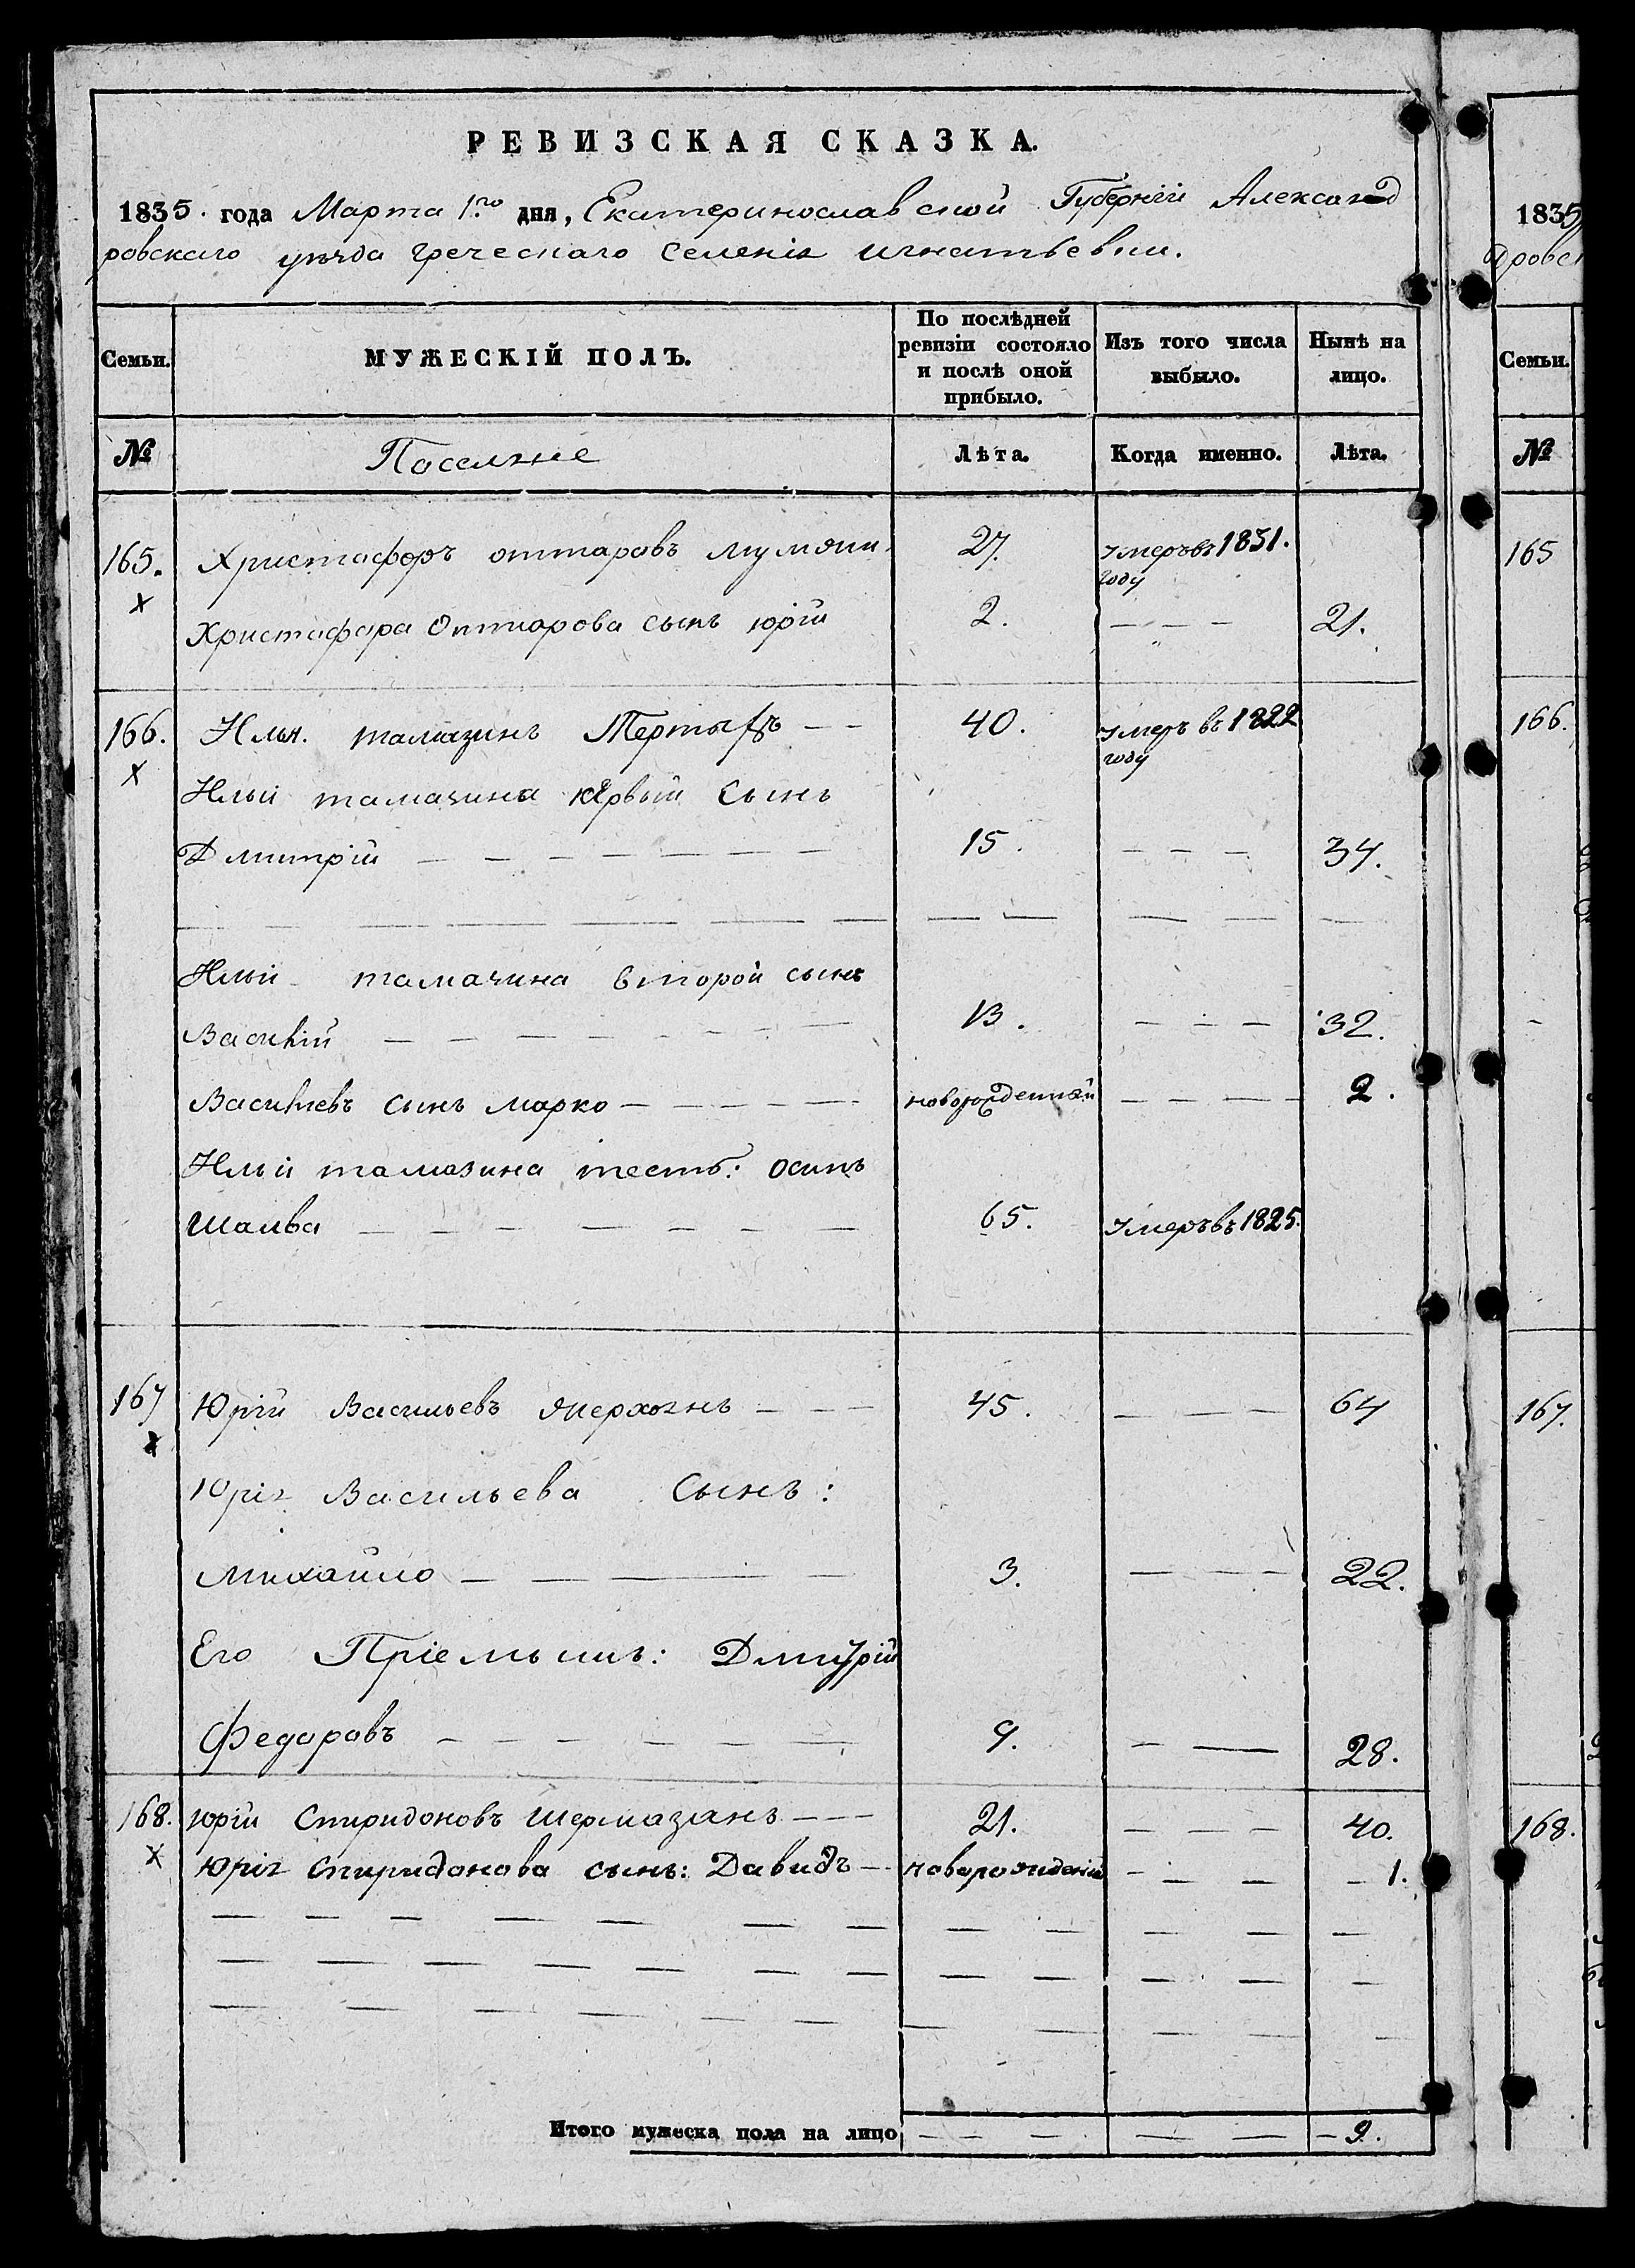 РЕВИЗСКАЯ СКАЗКА.
1835. года Марта 1го дня, Екатеринославской Губернiи Александ
ровскаго уѣзда греческаго селенiя Игнатьевки.
Семьи. МУЖЕСКІЙ ПОЛЪ. По послѣдней ревизіи состояло и послѣ оной прибыло. Изъ того числа выбыло. Нынѣ на лицо.
№ Поселяне Лѣта. Когда именно. Лѣта.
165. Христафоръ оттаровъ 27. умеръ въ 1831. году
х Христафора Оттарова сынъ юрiй 2. — — — 21.
166. Илья. тамазинъ 40. умеръ въ 1822 году
х Ильи тамазина первый сынъ
Дмитрiй — — — — — — — 15. — — — 34.
Ильи тамазина второй сынъ
Василiй — — — — — — — 13. — — — 32.
Васильевъ сынъ марко — — — — — новорожденный — — — — 2.
Ильи тамазина тесть: осипъ
Шалва — — — — — — — 65. умеръ въ 1825.
167 Юрiй Васильевъ — — — 45. — — — 64
х Юрiя Васильева сынъ:
михайло — — — — — 3. — — — 22.
Его Прiемышъ: Дмитрiй
Федоровъ — — — — — — 9. — — 28.
168. юрiй Спиридоновъ Шермазанъ — — — 21. — — — 40.
х Юрiя Спиридонова сынъ: Давидъ — новорожденiй — — — — 1.
Итого мужеска пола на лицо — — — — — — 9.
1835
дровск
Семьи.
№
165
166.
167.
168.